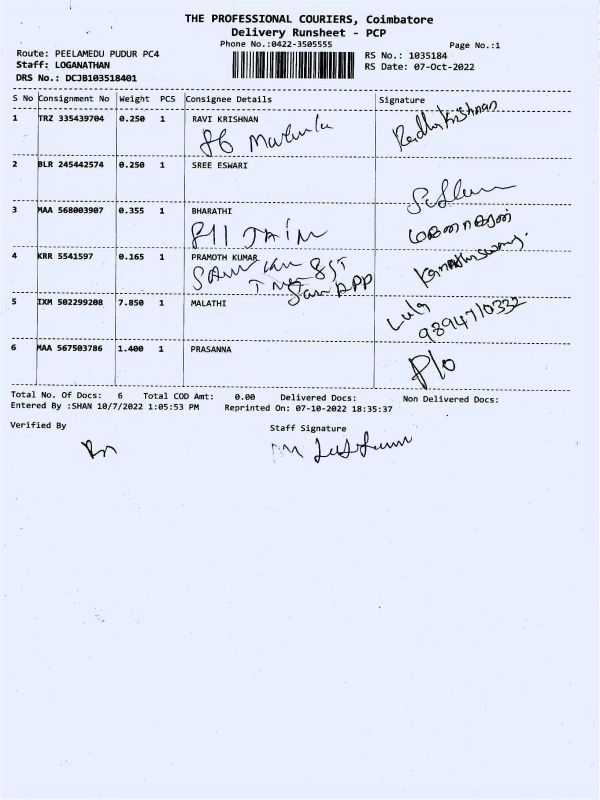 THE PROFESSIONAL COURIERS, Coimbatore
Delivery Runsheet - PCP
Phone No.:0422-3505555
Page No.:1
Route: PEELAMEDU PUDUR PC4
Staff: LOGANATHAN
DRS No.: DCJB103518401
RS No.: 1035184
RS Date: 07-Oct-2022
S No Consignment No Weight PCS Consignee Details Signature
1 TRZ 335439704 0.250 1 RAVI KRISHNAN
Radhakrishnan
2 BLR 245442574 0.250 1 SREE ESWARI
3 MAA 568003907 0.355 1 BHARATHI
JAIN
4 KRR 5541597 0.165 1 PRAMOTH KUMAR
5 IXM 502299208 7.850 1 MALATHI
9894710332
6 MAA 567503786 1.400 1 PRASANNA
P/o
Total No. Of Docs: 6 Total COD Amt: 0.00 Delivered Docs: Non Delivered Docs:
Entered By :SHAN 10/7/2022 1:05:53 PM Reprinted On: 07-10-2022 18:35:37
Verified By Staff Signature